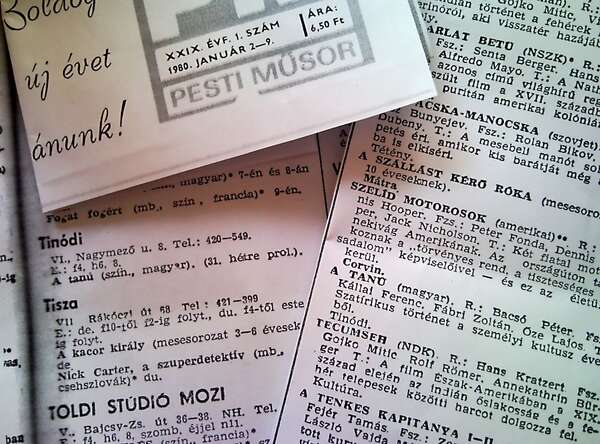 Boldog
új évet
ánunk!
XXIX. ÉVF. 1. SZÁM
1980. JANUÁR 2—9.
ÁRA:
6,50 Ft
PESTI MŰSOR
magyar)* 7-én és 8-án
Fogat fogért (mb., szín., francia)* 9-én.
Tinódi
VI., Nagymező u. 8. Tel.: 420—549.
E.: f4, h6, 8.
A tanú (szín., magyar). (31. hétre prol.).
Tisza
VII Rákóczi út 68 Tel : 421—399
E.: de. f10-től f2-ig folyt., du. f4-től este
ig folyt.
A kacor király (mesesorozat 3—6 évesek
de
Nick Carter, a szuperdetektív (mb.,
csehszlovák)* du.
TOLDI STÚDIÓ MOZI
V., Bajcsy-Zs. út 36—38. NH. Tel.
E.: f4, h6, 8, szomb. éjjel n11.
Gojko Mitic,
történet a fehérek
rinóról, aki visszatér hazájá
ARLAT BETŰ (NSZK)* R.:
Fsz.: Senta Berger, Hans
Alfredo Mayo. T.: A Nath
azonos című világhírű reg
szült film a XVII. század
puritán amerikai kolóniá
ÁCSKA-MANOCSKA (szovjet).
Bunyejev. Fsz.: Rolan Bikov,
Dubeny. T.: A mesebeli manót sol
petés éri, amikor kis barátját még a
ba is elkíséri.
Tétény.
A SZÁLLÁST KÉRŐ RÓKA (mesesoro
10 éveseknek).
Mátra.
SZELÍD MOTOROSOK (amerikai)** R.:
nis Hooper. Fzs.: Peter Fonda, Dennis
per, Jack Nicholson. T.: Két fiatal mot
nekivág Amerikának. Az országúton ta
koznak a „törvényes rend, a tisztességes
sadalom" képviselőivel — és ez az életü
kerül.
Corvin.
A TANÚ (magyar). R.: Bacsó Péter. Fsz
Kállai Ferenc, Fábri Zoltán, Őze Lajos. T
Szatirikus történet a személyi kultusz éve
ből.
Tinódi.
TECUMSEH (NDK). R.: Hans Kratzert. Fsz.
Gojko Mitic Rolf Römer, Annekathrin Bür
ger T.: A film Észak-Amerikában a XIX.
század elején az indián őslakosság és a fe
hér telepesek közötti harcot dolgozza f
Kultúra.
A TENKES KAPITÁNYA I—I
Fejér Tamás. Fsz.: Z
László Vajda M
tott kuru